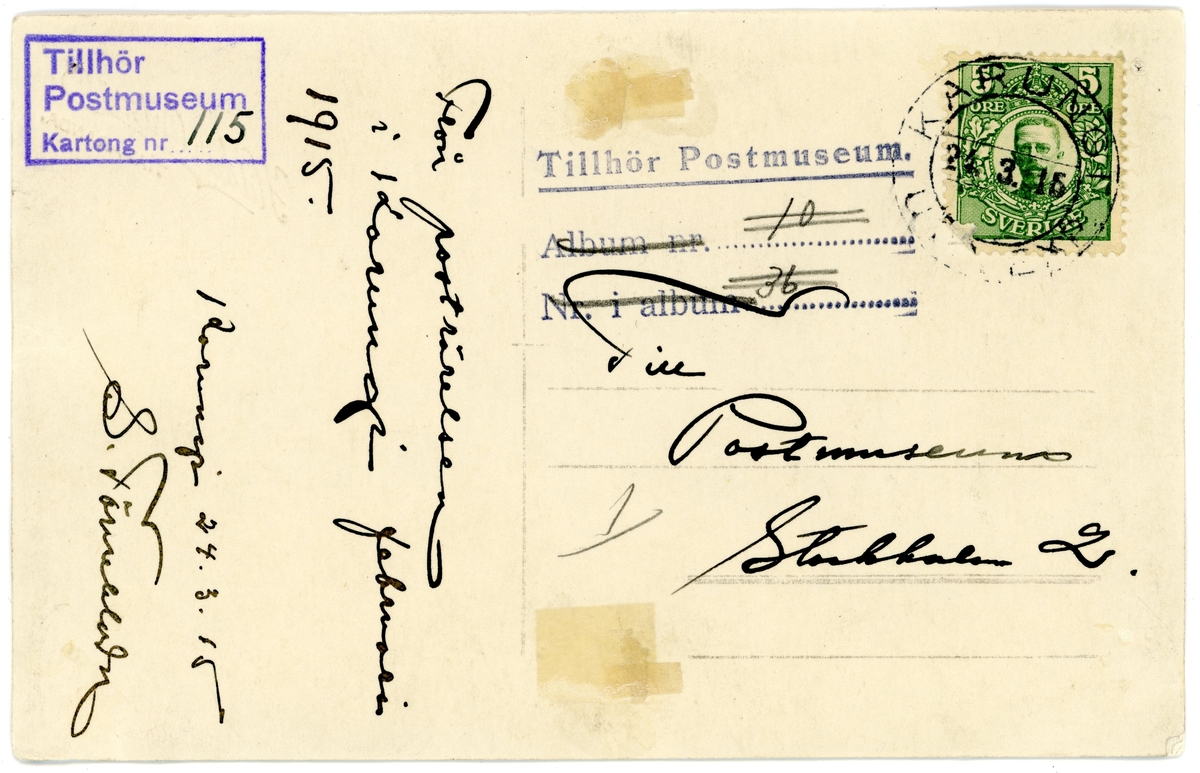 Tillhör
Postmuseum
Kartong nr 115
Från poströrelsen
i Karungi februari
1915.
Karungi 24.3.15
Tillhör Postmuseum.
Album nr. 10
Nr. i album 36
Till
Postmuseum
Stockholm 2.
1
5 5
ÖRE ÖRE
SVERIGE
KARUNGI
24. 3. 15